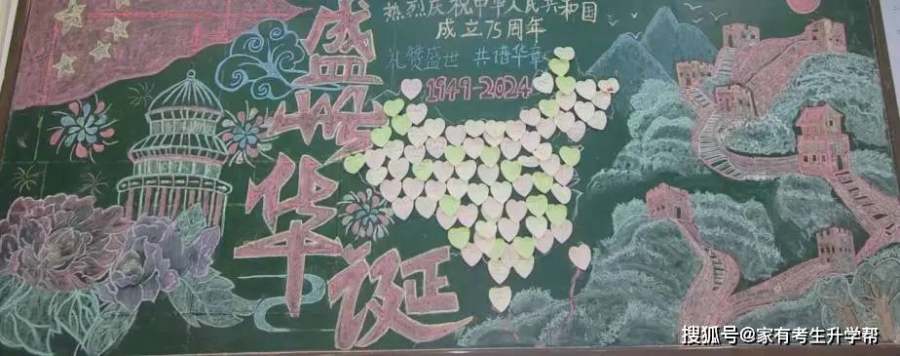 热烈庆祝中华人民共和国
成立75周年
礼赞盛世 共谱华章
1949-2024
盛世华诞
搜狐号@家有考生升学帮